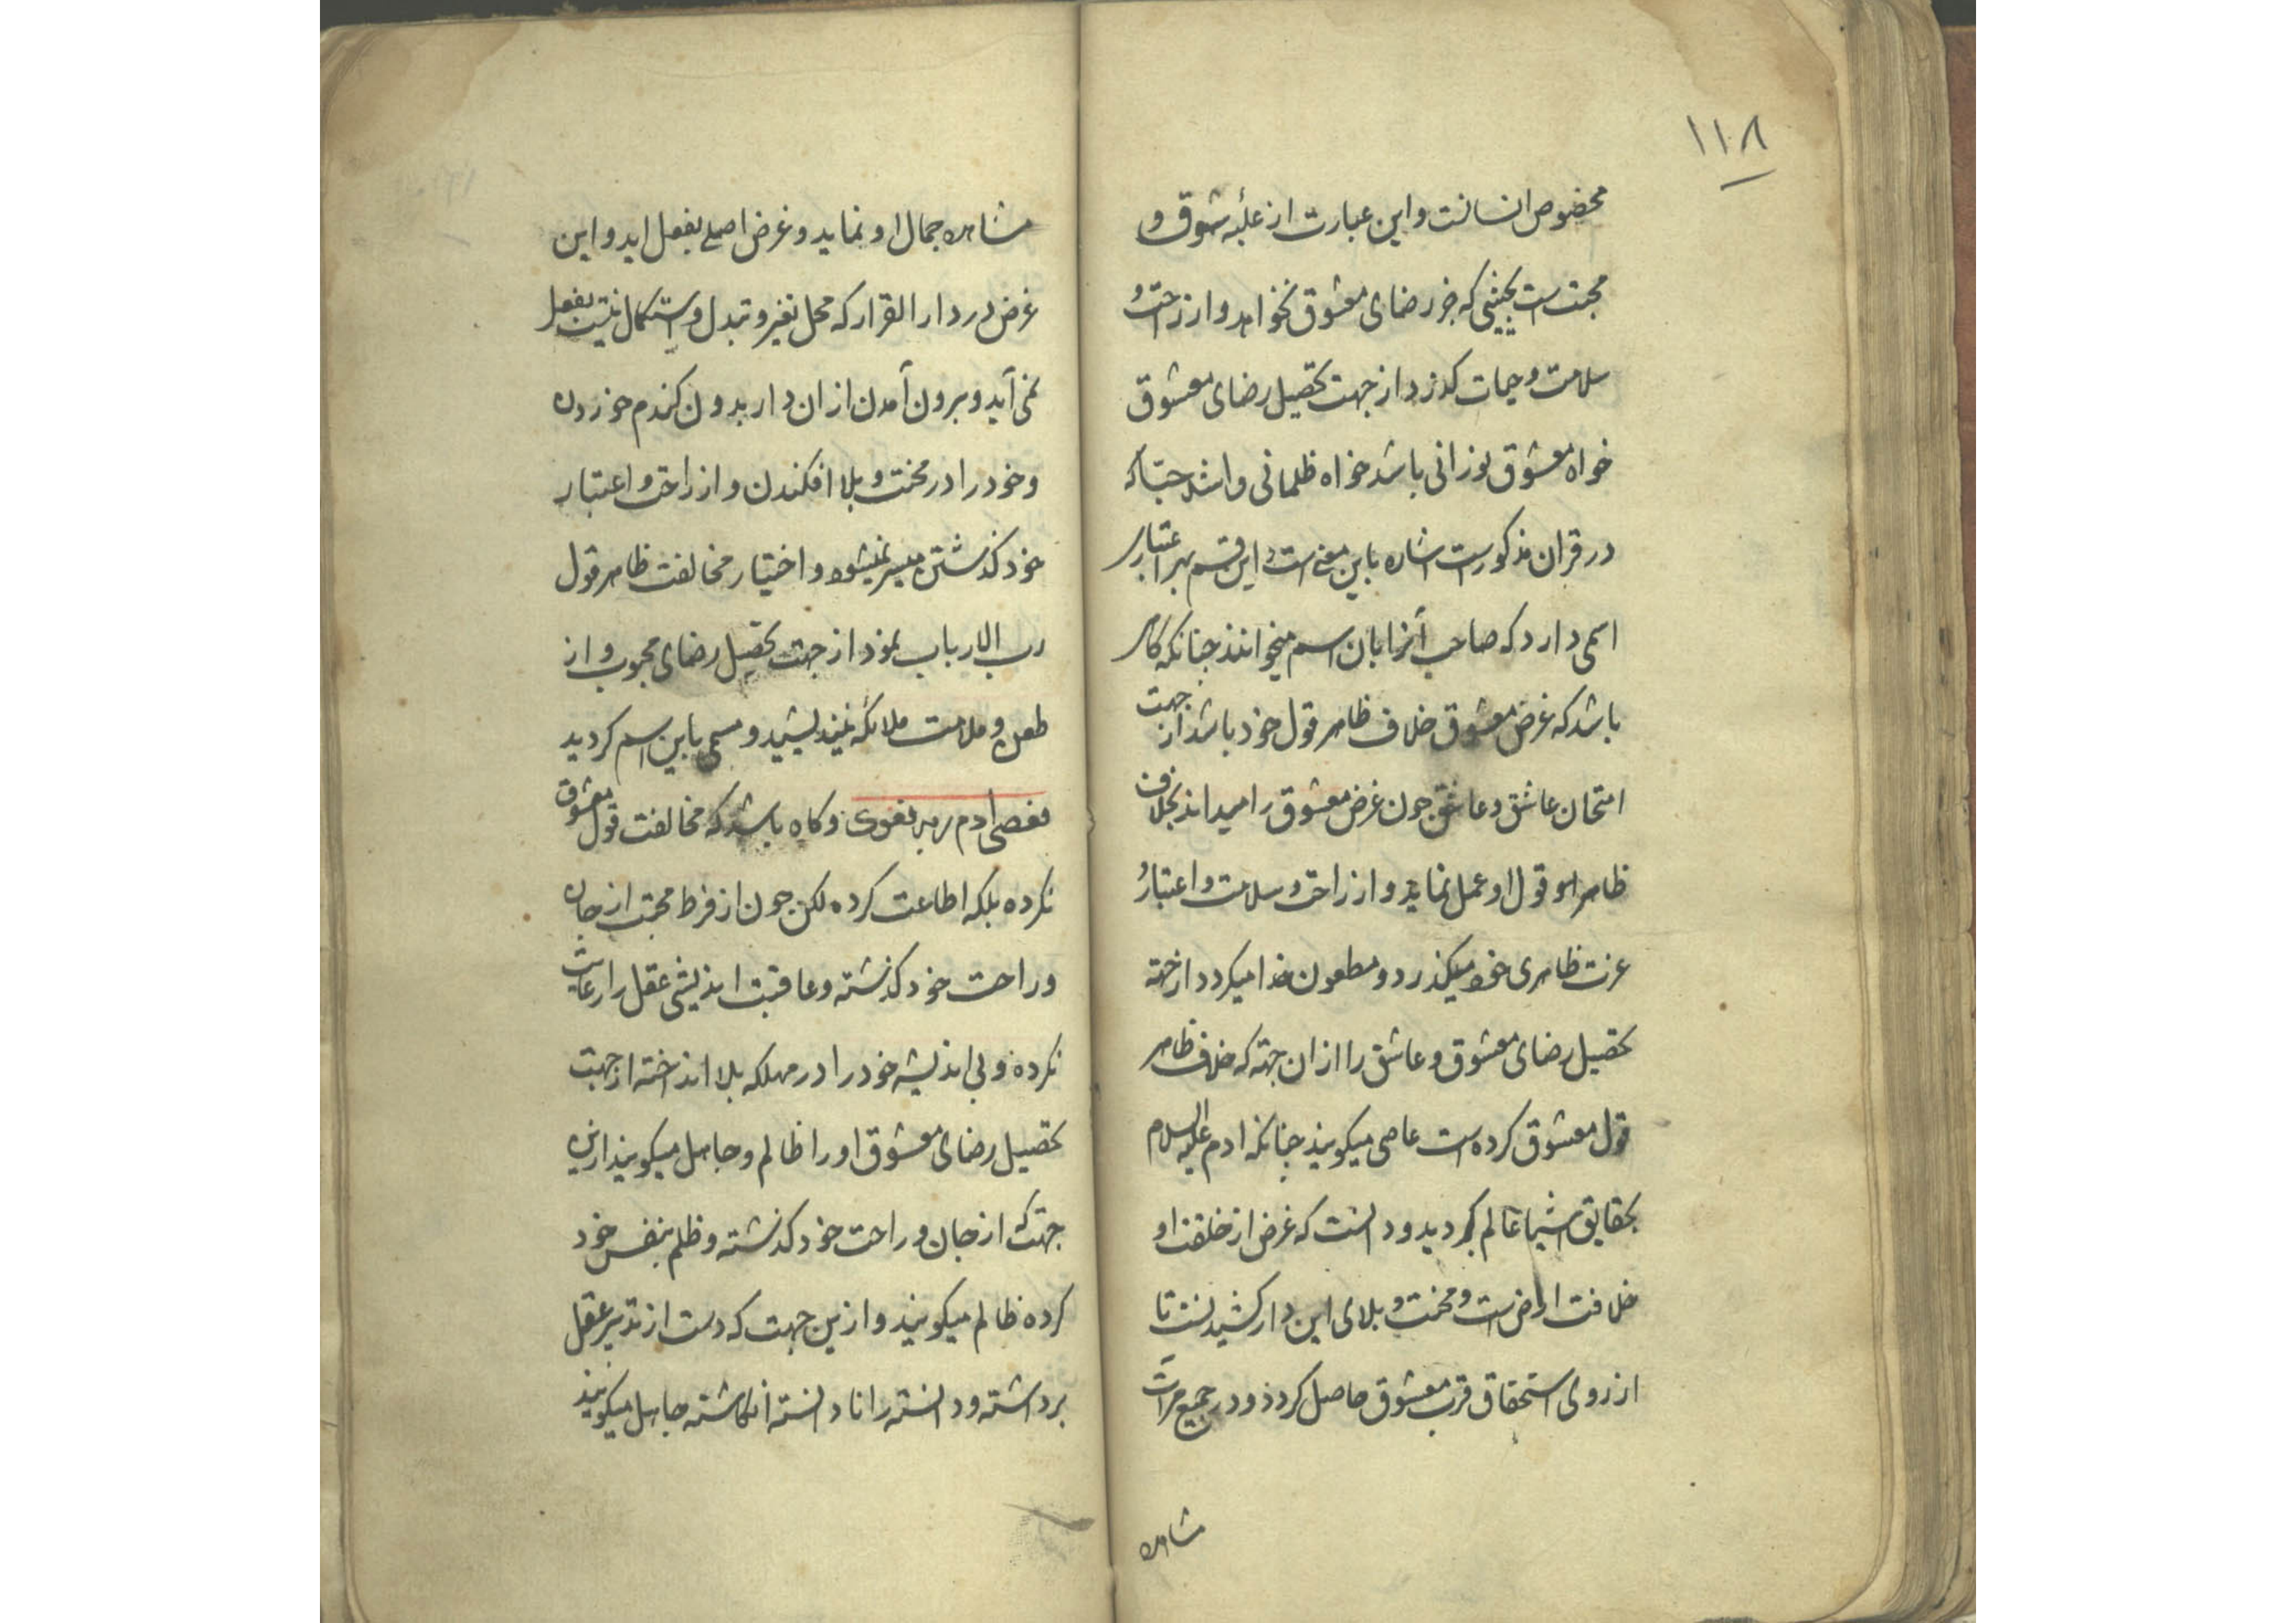 ۱۱۸
مخصوص انسانست و این عبارت از غلبهٔ شوق و
محبت است بحیثی که جز رضای معشوق نخواهد و از راحت و
سلامت و حیات کذرد از جهت تحصیل رضای معشوق
خواه معشوق نورانی باشد خواه ظلمانی و اشد حبّا که
در قران مذکورست اشاره باین معنی است و این قسم بهر اعتبار
اسمی دارد که صاحب آنرا بان اسم میخوانند چنانکه کاه
باشد که غرض معشوق خلاف ظاهر قول خود باشد از جهت
امتحان عاشق و عاشق چون غرض معشوق را میداند بخلاف
ظاهر قول او عمل نماید و از راحت و سلامت و اعتبار و
عزت ظاهری خود میکذرد و مطعون میکردد از جهة
تحصیل رضای معشوق و عاشق را ازان جهة که خلاف ظاهر
قول معشوق کرده است عاصی میکویند چنانکه ادم علیه السلام
بحقایق اشیا عالم کردید و دانست که غرض از خلقت او
خلافت ارض است و محنت و بلای این دار کشیدنست تا
از روی استحقاق قرب معشوق حاصل کردد و در جمیع مرات
مشاهده
مشاهده جمال او نماید و غرض اصلی بفعل اید و این
غرض در دار القرار که محل تغیر و تبدل و استکمال نیست بفعل
نمی آید و برون آمدن ازان دار بدون کندم خوردن
و خود را در محنت و بلا افکندن و از راحت و اعتبار
خود کذشتن میسر نمیشود و اختیار مخالفت ظاهر قول
رب الارباب نمود از جهت تحصیل رضای محبوب و از
طعن و ملامت ملائکه نیندیشید و مسمی باین اسم کردید
فعصی ادم ربه فغوی و کاه باشد که مخالفت قول معشوق
نکرده بلکه اطاعت کرده لکن چون از فرط محبت از جان
و راحت خود کذشته و عاقبت اندیشی عقل را رعایت
نکرده و بی اندیشه خود را در مهلکه بلا انداخته از جهت
تحصیل رضای معشوق او را ظالم و جاهل میکویند ازین
جهت که از جان و راحت خود کذشته و ظلم بنفس خود
کرده ظالم میکویند و ازین جهت که دست از تدبیر عقل
برداشته و دانسته را نادانسته انکاشته جاهل میکویند